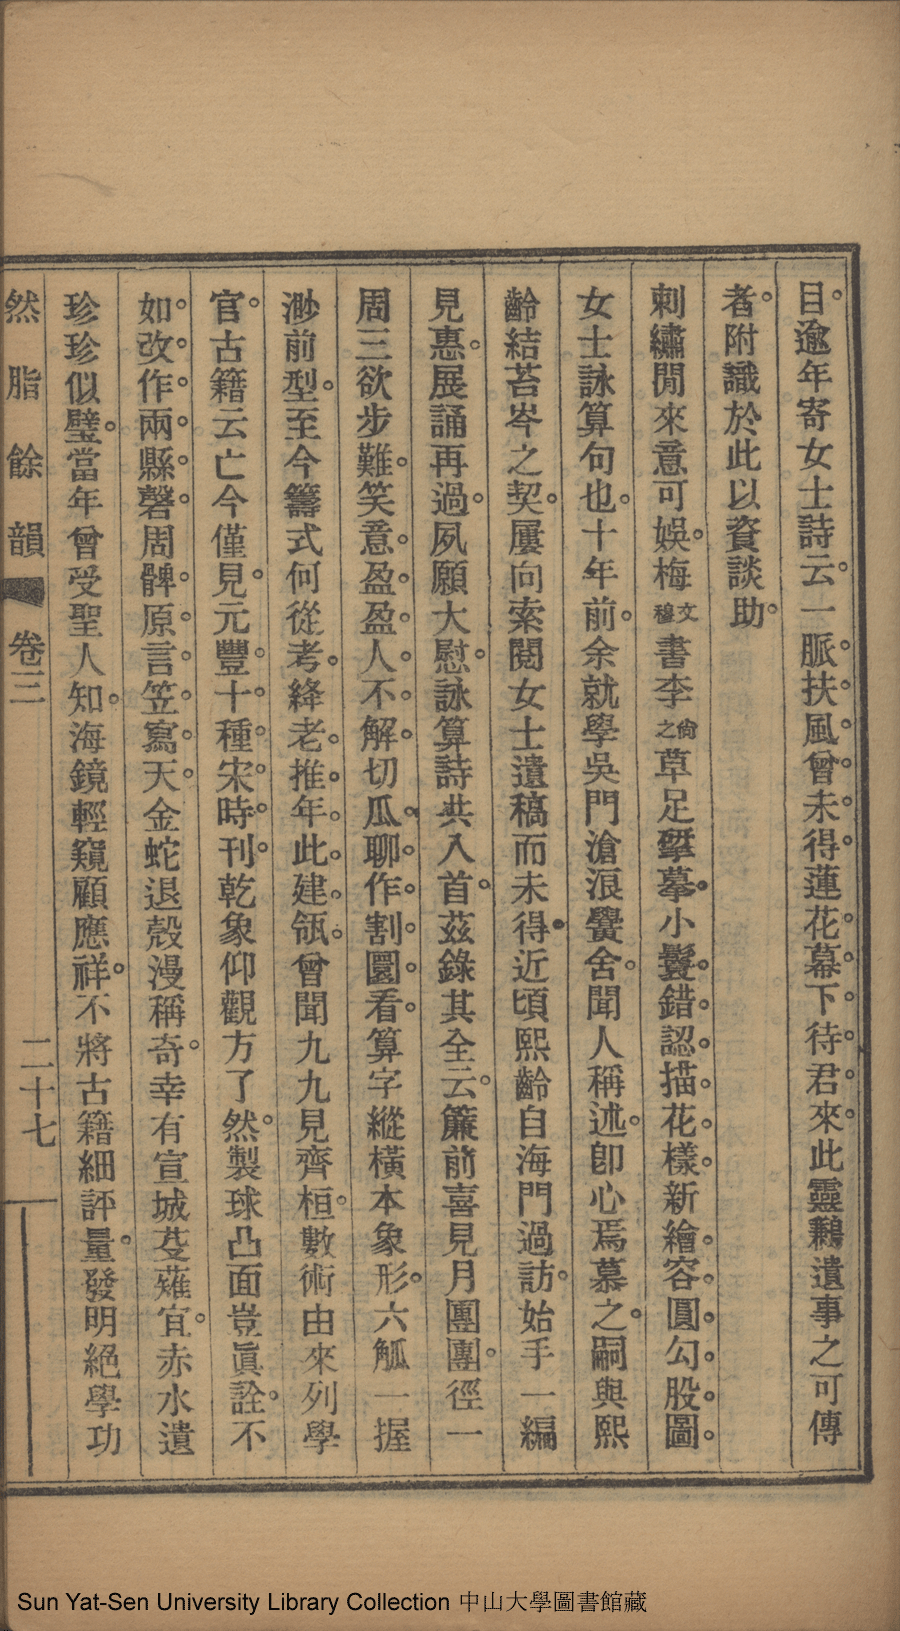 目逾年寄女士詩云一脈扶風曾未得蓮花幕下待君來此靈鶼遺事之可傳
者附識於此以資談助
刺繡閒來意可娛梅文穆書李尙之草足揅摹小鬟錯認描花樣新繪容圓勾股圖
女士詠算句也十年前余就學吳門滄浪黌舍聞人稱述卽心焉慕之嗣與熙
齡結苔岑之契屢向索閱女士遺稿而未得近頃熙齡自海門過訪始手一編
見惠展誦再過夙願大慰詠算詩共入首茲錄其全云簾前喜見月團團徑一
周三欲步難笑意盈盈人不解切瓜聊作割圜看算字縱橫本象形六觚一握
渺前型至今籌式何從考絳老推年此建瓴曾聞九九見齊桓數術由來列學
官古籍云亡今僅見元豐十種宋時刊乾象仰觀方了然製球凸面豈眞詮不
如改作兩縣磬周髀原言笠寫天金蛇退殼漫稱奇幸有宣城芟薙宜赤水遺
珍珍似璧當年曾受聖人知海鏡輕窺顧應祥不將古籍細評量發明絕學功
然脂餘韻 卷三 二十七
Sun Yat-Sen University Library Collection 中山大學圖書館藏